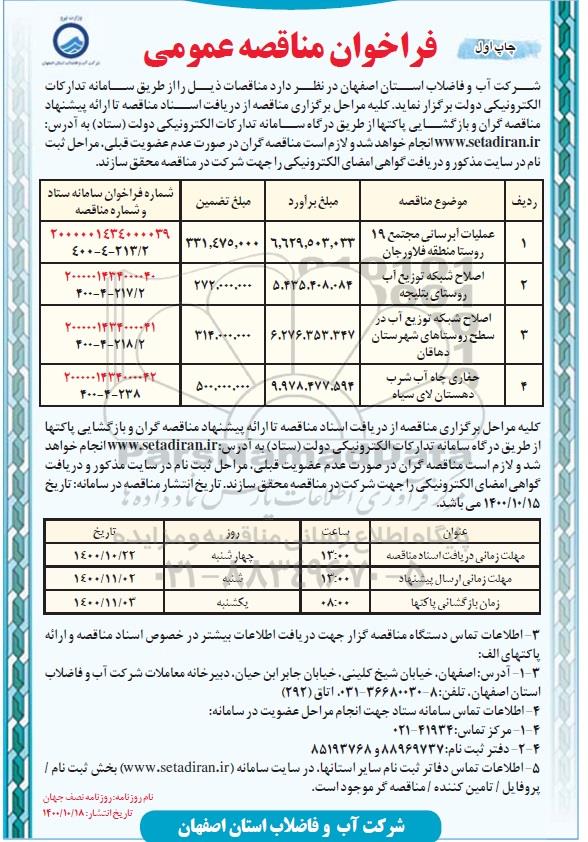 وزارت نیرو
شرکت آب و فاضلاب استان اصفهان
فراخوان مناقصه عمومی
چاپ اول
شرکت آب و فاضلاب استان اصفهان در نظر دارد مناقصات ذیل را از طریق سامانه تدارکات
الکترونیکی دولت برگزار نماید. کلیه مراحل برگزاری مناقصه از دریافت اسناد مناقصه تا ارائه پیشنهاد
مناقصه گران و بازگشایی پاکتها از طریق درگاه سامانه تدارکات الکترونیکی دولت (ستاد) به آدرس:
www.setadiran.ir انجام خواهد شد و لازم است مناقصه گران در صورت عدم عضویت قبلی، مراحل ثبت
نام در سایت مذکور و دریافت گواهی امضای الکترونیکی را جهت شرکت در مناقصه محقق سازند.
ردیف موضوع مناقصه مبلغ برآورد مبلغ تضمین شماره فراخوان سامانه ستاد و شماره مناقصه
۱ عملیات آبرسانی مجتمع ۱۹ روستا منطقه فلاورجان ۶,۶۲۹,۵۰۳,۰۳۳ ۳۳۱,۴۷۵,۰۰۰ ۲۰۰۰۰۰۱۴۳۴۰۰۰۰۳۹
۴۰۰-۴-۲۱۳/۲
۲ اصلاح شبکه توزیع آب روستای بتلیجه ۵.۴۳۵.۴۰۸.۰۸۴ ۲۷۲.۰۰۰.۰۰۰ ۲۰۰۰۰۰۱۴۳۴۰۰۰۰۴۰
۴۰۰-۴-۲۱۷/۲
۳ اصلاح شبکه توزیع آب در سطح روستاهای شهرستان دهاقان ۶.۲۷۶.۳۵۳.۳۴۷ ۳۱۴.۰۰۰.۰۰۰ ۲۰۰۰۰۰۱۴۳۴۰۰۰۰۴۱
۴۰۰-۴-۲۱۸/۲
۴ حفاری چاه آب شرب دهستان لای سیاه ۹.۹۷۸.۴۷۷.۵۹۴ ۵۰۰.۰۰۰.۰۰۰ ۲۰۰۰۰۰۱۴۳۴۰۰۰۰۴۲
۴۰۰-۴-۲۳۸
کلیه مراحل برگزاری مناقصه از دریافت اسناد مناقصه تا ارائه پیشنهاد مناقصه گران و بازگشایی پاکتها
از طریق درگاه سامانه تدارکات الکترونیکی دولت (ستاد) به آدرس: www.setadiran.ir انجام خواهد
شد و لازم است مناقصه گران در صورت عدم عضویت قبلی، مراحل ثبت نام در سایت مذکور و دریافت
گواهی امضای الکترونیکی را جهت شرکت در مناقصه محقق سازند. تاریخ انتشار مناقصه در سامانه: تاریخ
۱۴۰۰/۱۰/۱۵ می باشد.
عنوان ساعت روز تاریخ
مهلت زمانی دریافت اسناد مناقصه ۱۳:۰۰ چهارشنبه ۱۴۰۰/۱۰/۲۲
مهلت زمانی ارسال پیشنهاد ۱۳:۰۰ شنبه ۱۴۰۰/۱۱/۰۲
زمان بازگشائی پاکتها ۰۸:۰۰ یکشنبه ۱۴۰۰/۱۱/۰۳
پایگاه اطلاع رسانی مناقصه و مزایده
۰۲۱-۸۸۳۴۹۶۷۰-۵
۳- اطلاعات تماس دستگاه مناقصه گزار جهت دریافت اطلاعات بیشتر در خصوص اسناد مناقصه و ارائه
پاکتهای الف:
۳-۱- آدرس: اصفهان، خیابان شیخ کلینی، خیابان جابر ابن حیان، دبیرخانه معاملات شرکت آب و فاضلاب
استان اصفهان، تلفن: ۸-۳۶۶۸۰۰۳۰-۰۳۱. اتاق (۲۹۲)
۴- اطلاعات تماس سامانه ستاد جهت انجام مراحل عضویت در سامانه:
۴-۱- مرکز تماس: ۴۱۹۳۴-۰۲۱
۴-۲- دفتر ثبت نام: ۸۸۹۶۹۷۳۷ و ۸۵۱۹۳۷۶۸
۵- اطلاعات تماس دفاتر ثبت نام سایر استانها، در سایت سامانه (www.setadiran.ir) بخش ثبت نام /
پروفایل / تامین کننده / مناقصه گر موجود است.
نام روزنامه: روزنامه نصف جهان
تاریخ انتشار: ۱۴۰۰/۱۰/۱۸
شرکت آب و فاضلاب استان اصفهان